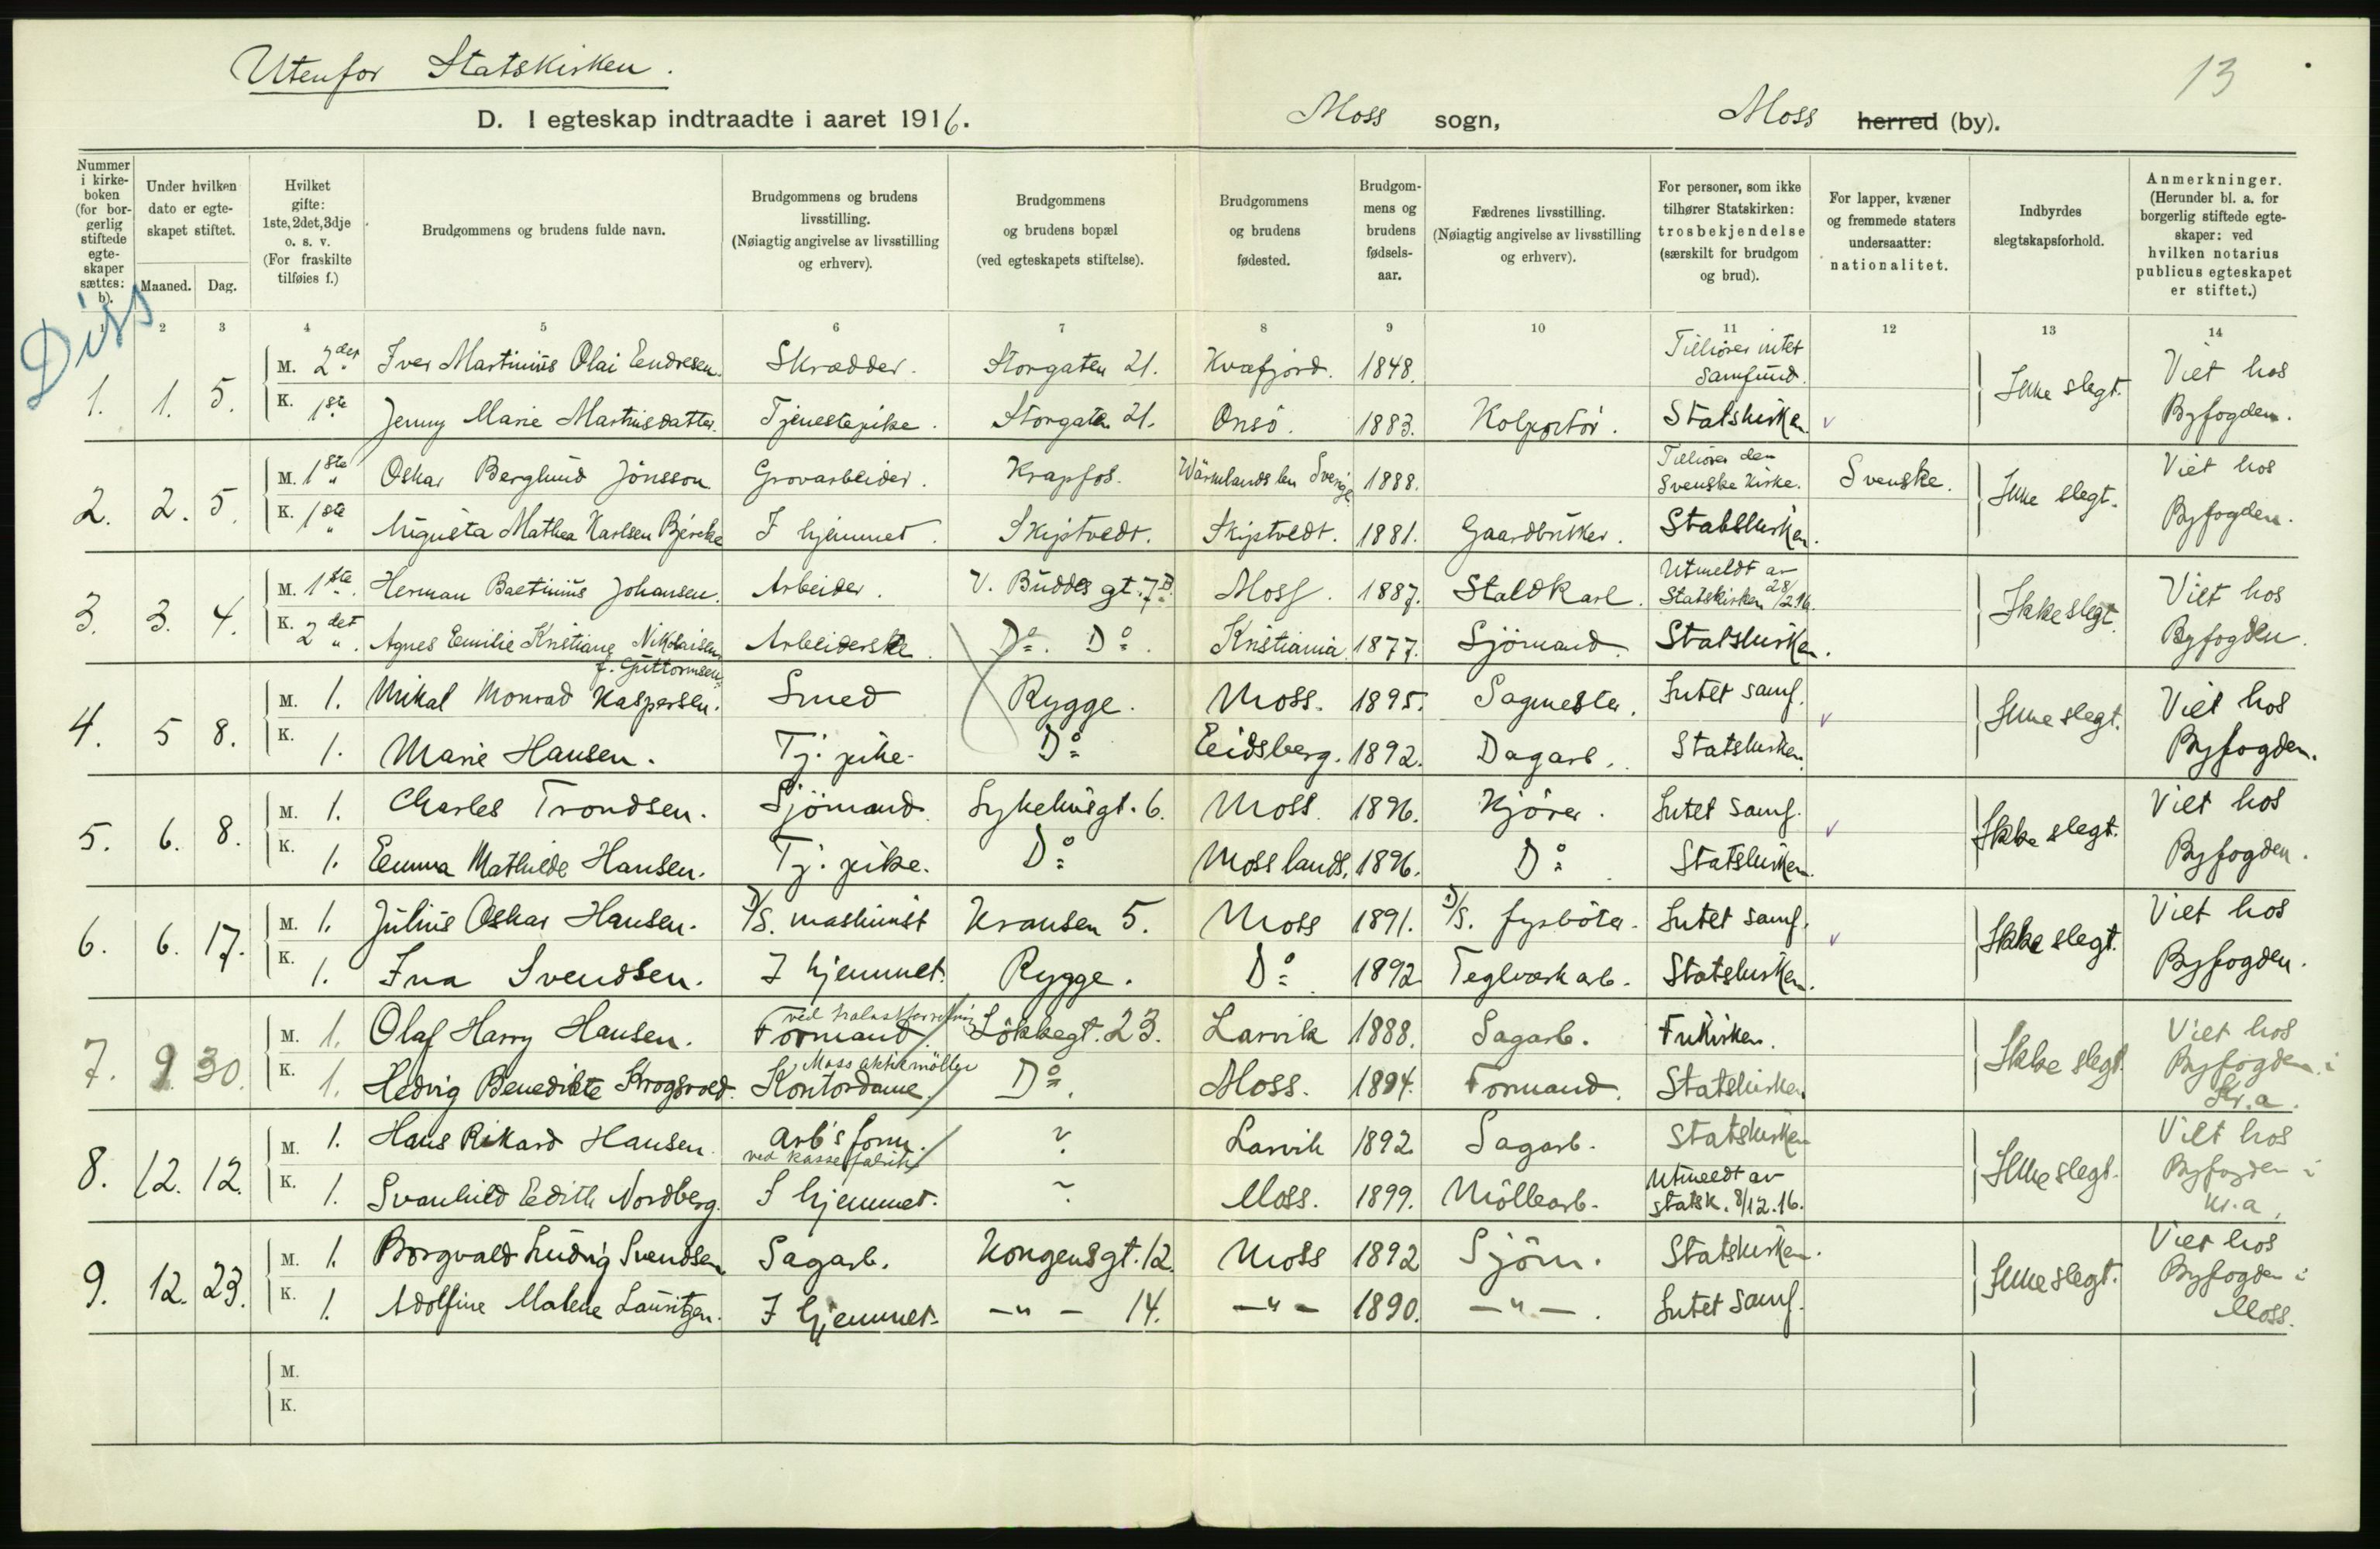 Utenfor Statskirken.
13
D. I egteskap indtraadte i aaret 1916.
Moss sogn,
Moss herred (by).
Diss
Nummer i kirkeboken (for borgerlig stiftede egteskaper sættes: b).
Under hvilken dato er egteskapet stiftet.
Maaned. Dag.
Hvilket gifte: 1ste, 2det, 3dje o. s. v. (For fraskilte tilføies f.)
Brudgommens og brudens fulde navn.
Brudgommens og brudens livsstilling. (Nøiagtig angivelse av livsstilling og erhverv).
Brudgommens og brudens bopæl (ved egteskapets stiftelse).
Brudgommens og brudens fødested.
Brudgommens og brudens fødselsaar.
Fædrenes livsstilling. (Nøiagtig angivelse av livsstilling og erhverv).
For personer, som ikke tilhører Statskirken: trosbekjendelse (særskilt for brudgom og brud).
For lapper, kvæner og fremmede staters undersaatter: nationalitet.
Indbyrdes slegtskapsforhold.
Anmerkninger. (Herunder bl. a. for borgerlig stiftede egteskaper: ved hvilken notarius publicus egteskapet er stiftet.)
1 2 3 4 5 6 7 8 9 10 11 12 13 14
1. 1. 5. M. 2det Iver Martinius Olai Endresen. Skrædder. Storgaten 21. Kvæfjord. 1848. Tilhører intet samfund. Ikke slegt. Viet hos Byfogden.
K. 1ste Jenny Marie Martinsdatter. Tjenestepike. Storgaten 21. Onsö. 1883. Kolportör. Statskirken.
2. 2. 5. M. 1ste Oskar Berglund Jönsson. Grovarbeider. Krapfos. Wärmlands len Sverige 1888. Tilhører den Svenske Kirke. Svenske. Ikke slegt. Viet hos Byfogden.
K. 1ste Augusta Mathea Karlsen Bjercke I hjemmet. Skiptvedt. Skiptvedt. 1881. Gaardbruker. Statskirken.
3. 3. 4. M. 1ste. Herman Baetinius Johansen. Arbeider. V. Buddes gt. 7B. Moss. 1887. Staldkarl. Utmeldt av Statskirken 28/2 16. Ikke slegt. Viet hos Byfogden.
K. 2det. Agnes Emilie Kristiane Nikolaisen f. Guttormsen. Arbeiderske. Do. Do. Kristiania. 1877. Sjömand. Statskirken.
4. 5 8. M. 1. Mikal Monrad Kaspersen. Smed Rygge. Moss. 1895. Sagmester. Intet samf. Ikke slegt. Viet hos Byfogden.
K. 1. Marie Hansen. Tj. pike. Do Eidsberg. 1892. Dagarb. Statskirken.
5. 6. 8. M. 1. Charles Trondsen. Sjömand. Sykehusgt. 6. Moss. 1896. Kjörer. Intet samf. Ikke slegt. Viet hos Byfogden.
K. 1. Emma Mathilde Hansen. Tj. pike. Do Moss lands. 1896. Do Statskirken.
6. 6. 17. M. 1. Julius Oskar Hansen. D/S. maskinist Kransen 5. Moss 1891. D/S. fyrböter. Intet samf. Ikke slegt. Viet hos Byfogden.
K. 1. Ina Svendsen. I hjemmet. Rygge. Do 1892 Teglverkarb. Statskirken.
7. 9 30. M. 1. Olaf Harry Hansen. Formand. Lökkegt. 23. Larvik 1888. Sagarb. Frikirken. Ikke slegt. Viet hos Byfogden i Kr.a.
K. 1. Hedvig Benedikte Krogsrod. Kontordame. Moss aktiemöller Do. Moss. 1894. Formand. Statskirken
8. 12. 12. M. 1. Hans Rikard Hansen. Arb's form. ved kassefabrik ? Larvik 1892. Sagarb. Statskirken Ikke slegt. Viet hos Byfogden i Kr.a.
K. 1. Svanhild Edith Nordberg. I hjemmet. ? Moss. 1899. Möllearb. Utmeldt av statsk. 8/12.16.
9. 12. 23. M. 1. Borgvald Ludvig Svendsen Sagarb. Kongensgt. 12. Moss 1892 Sjöm. Statskirken. Ikke slegt. Viet hos Byfogden i Moss.
K. 1. Adolfine Malene Lauritzen. I hjemmet. —"— 14. —"— 1890. —"—. Intet samf.
M.
K.